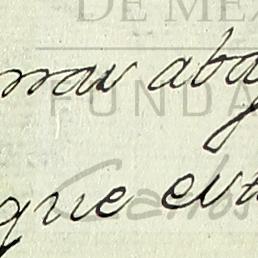 DE MÉX
mas abaj
FUNDA
que esta
Carlos